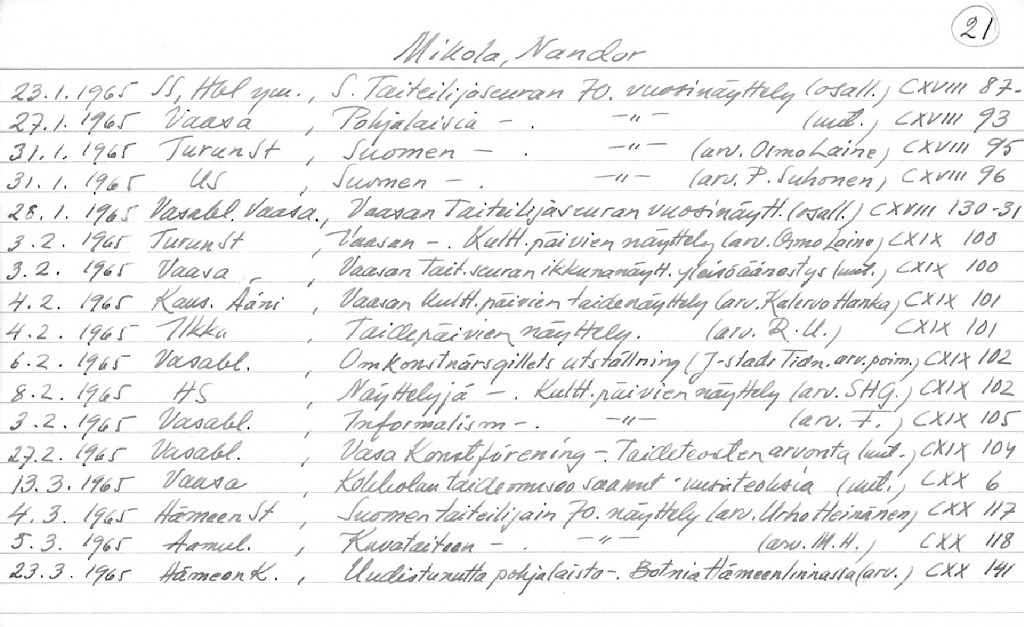 21
Mikola, Nandor
23.1.1965 SS, Hbl ym., S. Taiteilijaseuran 70. vuosinäyttely (osall.) CXVIII 87-
27.1.1965 Vaasa , Pohjalaisia - . -"- (uut.) CXVIII 93
31.1.1965 TurunSt , Suomen - . -"- (arv. Osmo Laine) CXVIII 95
31.1.1965 US , Suomen - . -"- (arv. P. Suhonen) CXVIII 96
28.1.1965 Vasabl. Vaasa., Vaasan Taiteilijaseuran vuosinäytt. (osall.) CXVIII 130-31
3.2.1965 TurunSt , Vaasan -. Kultt.päivien näyttely (arv. Osmo Laine) CXIX 100
3.2.1965 Vaasa , Vaasan Tait.seuran ikkunanäytt. yleisöäänestys (uut.) CXIX 100
4.2.1965 Kans. Ääni , Vaasan Kultt.päivien taidenäyttely (arv. Kalervo Hanka) CXIX 101
4.2.1965 Ilkka , Taidepäivien näyttely. (arv. R.U.) CXIX 101
6.2.1965 Vasabl. , Om Konstnärsgillets utställning (J-stads Tidn. arv. poim.) CXIX 102
8.2.1965 HS , Näyttelyjä -. Kultt.päivien näyttely (arv. SHG.) CXIX 102
3.2.1965 Vasabl. , Informalism -. -"- (arv. F.) CXIX 105
27.2.1965 Vasabl. , Vasa Konstförening -. Taideteosten arvonta (uut.) CXIX 104
13.3.1965 Vaasa , Kokkolan taidemuseo saanut uusia teoksia (uut.) CXX 6
4.3.1965 HämeenSt , Suomen taiteilijain 70. näyttely (arv. Urho Heinänen) CXX 117
5.3.1965 Aamul. , Kuvataiteen - . -"- (arv. M.H.) CXX 118
23.3.1965 HämeenK. , Uudistunutta pohjalaista -. Botnia Hämeenlinnassa (arv.) CXX 141